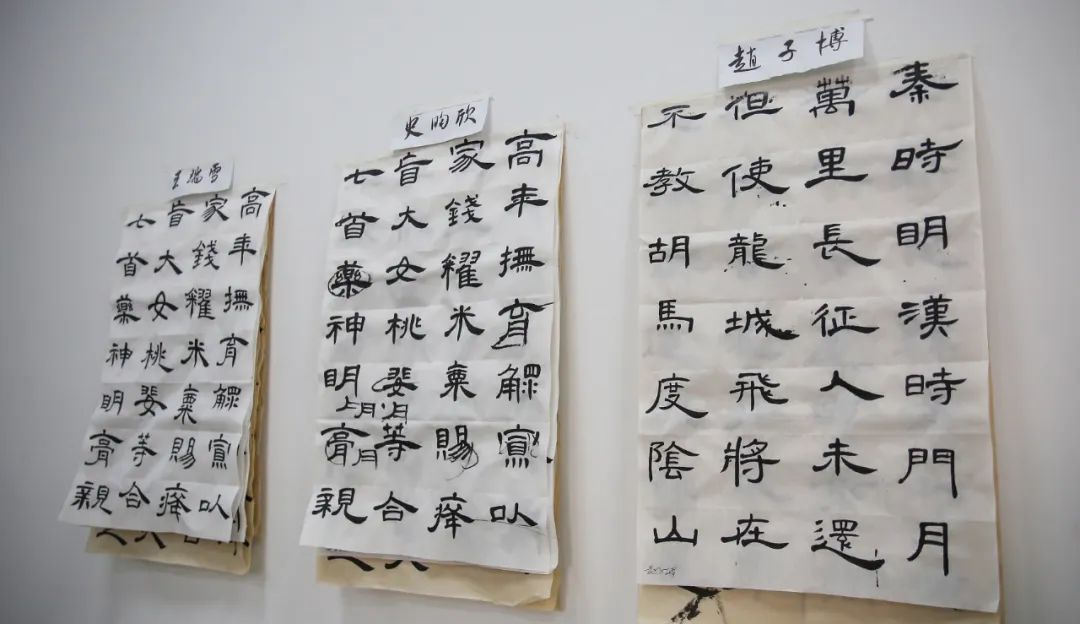 王瑞雪
高年撫育鰥寡以
家錢糴米粟賜癃
盲大女桃婓等合
七首藥神明膏親
史昀欣
高年撫育鰥寡以
家錢糴米粟賜癃
盲大女桃婓等合
七首藥神明膏親
月
月
月
趙子博
秦時明漢時門月
萬里長征人未還
但使龍城飛將在
不教胡馬度陰山